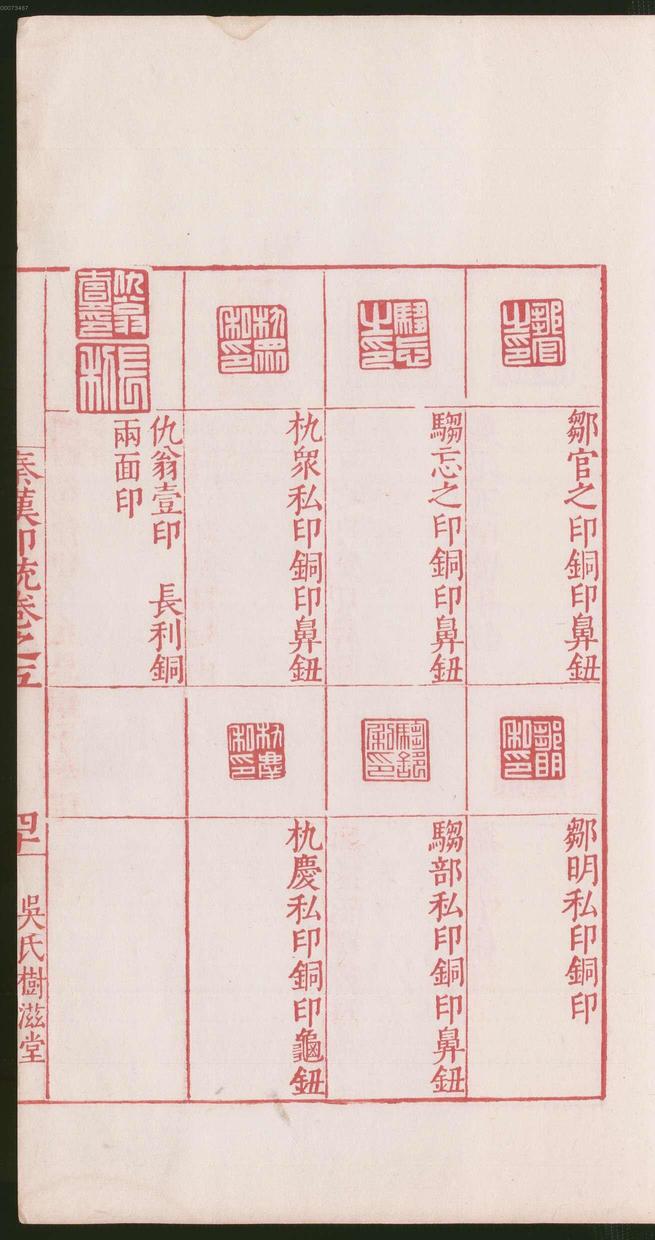 鄒官之印銅印鼻鈕
騶忘之印銅印鼻鈕
杋眾私印銅印鼻鈕
仇翁壹印 長利銅
兩面印
鄒明私印銅印
騶部私印銅印鼻鈕
杋慶私印銅印龜鈕
秦漢印統卷之五
四十一
吳氏樹滋堂
00073467